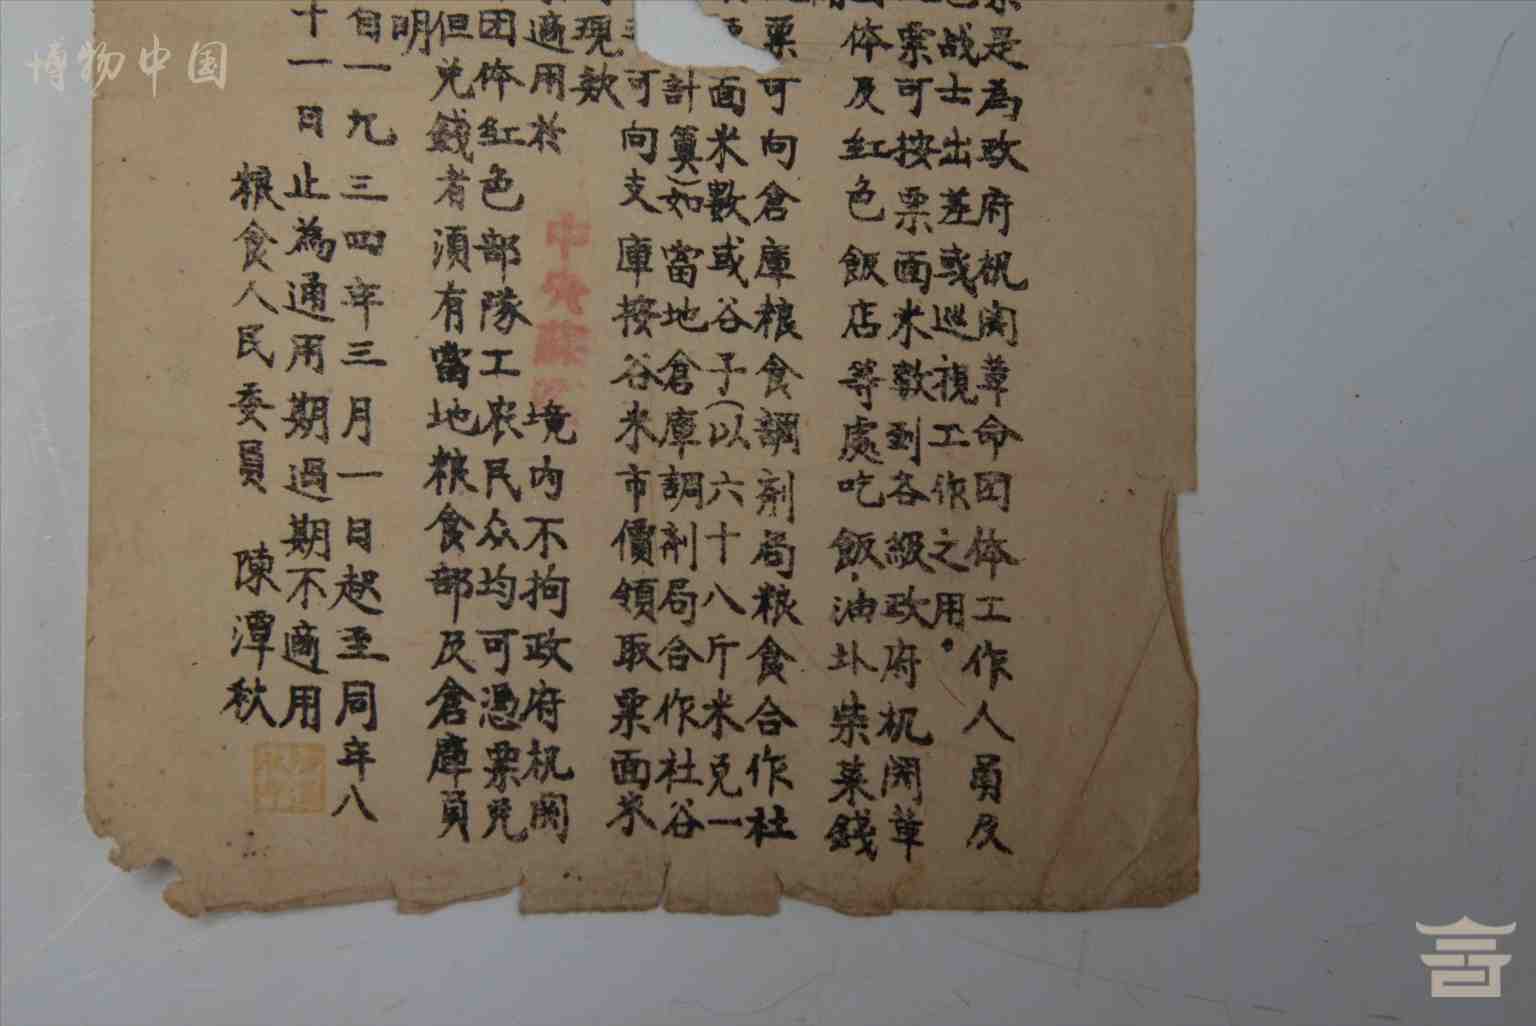 博物中国
票是為政府机関革命团体工作人員及
色战士出差或巡視工作之用。
票可按票面米數到各級政府机関革
体及紅色飯店等處吃飯，油圤柴菜錢
票可向倉庫粮食調剂局粮食合作社
面米數或谷子（以六十八斤米克一
計算）如當地倉庫調剂局合作社谷
可向支庫按谷米市價領取票面米
現欵
適用於中央蘇 境内不拘政府机関
团体红色部隊工农民众均可憑票兑
但兑錢者須有當地粮食部及倉庫員
明
自一九三四年三月一日起至同年八
十一日止為通用期過期不適用
粮食人民委員 陳潭秋